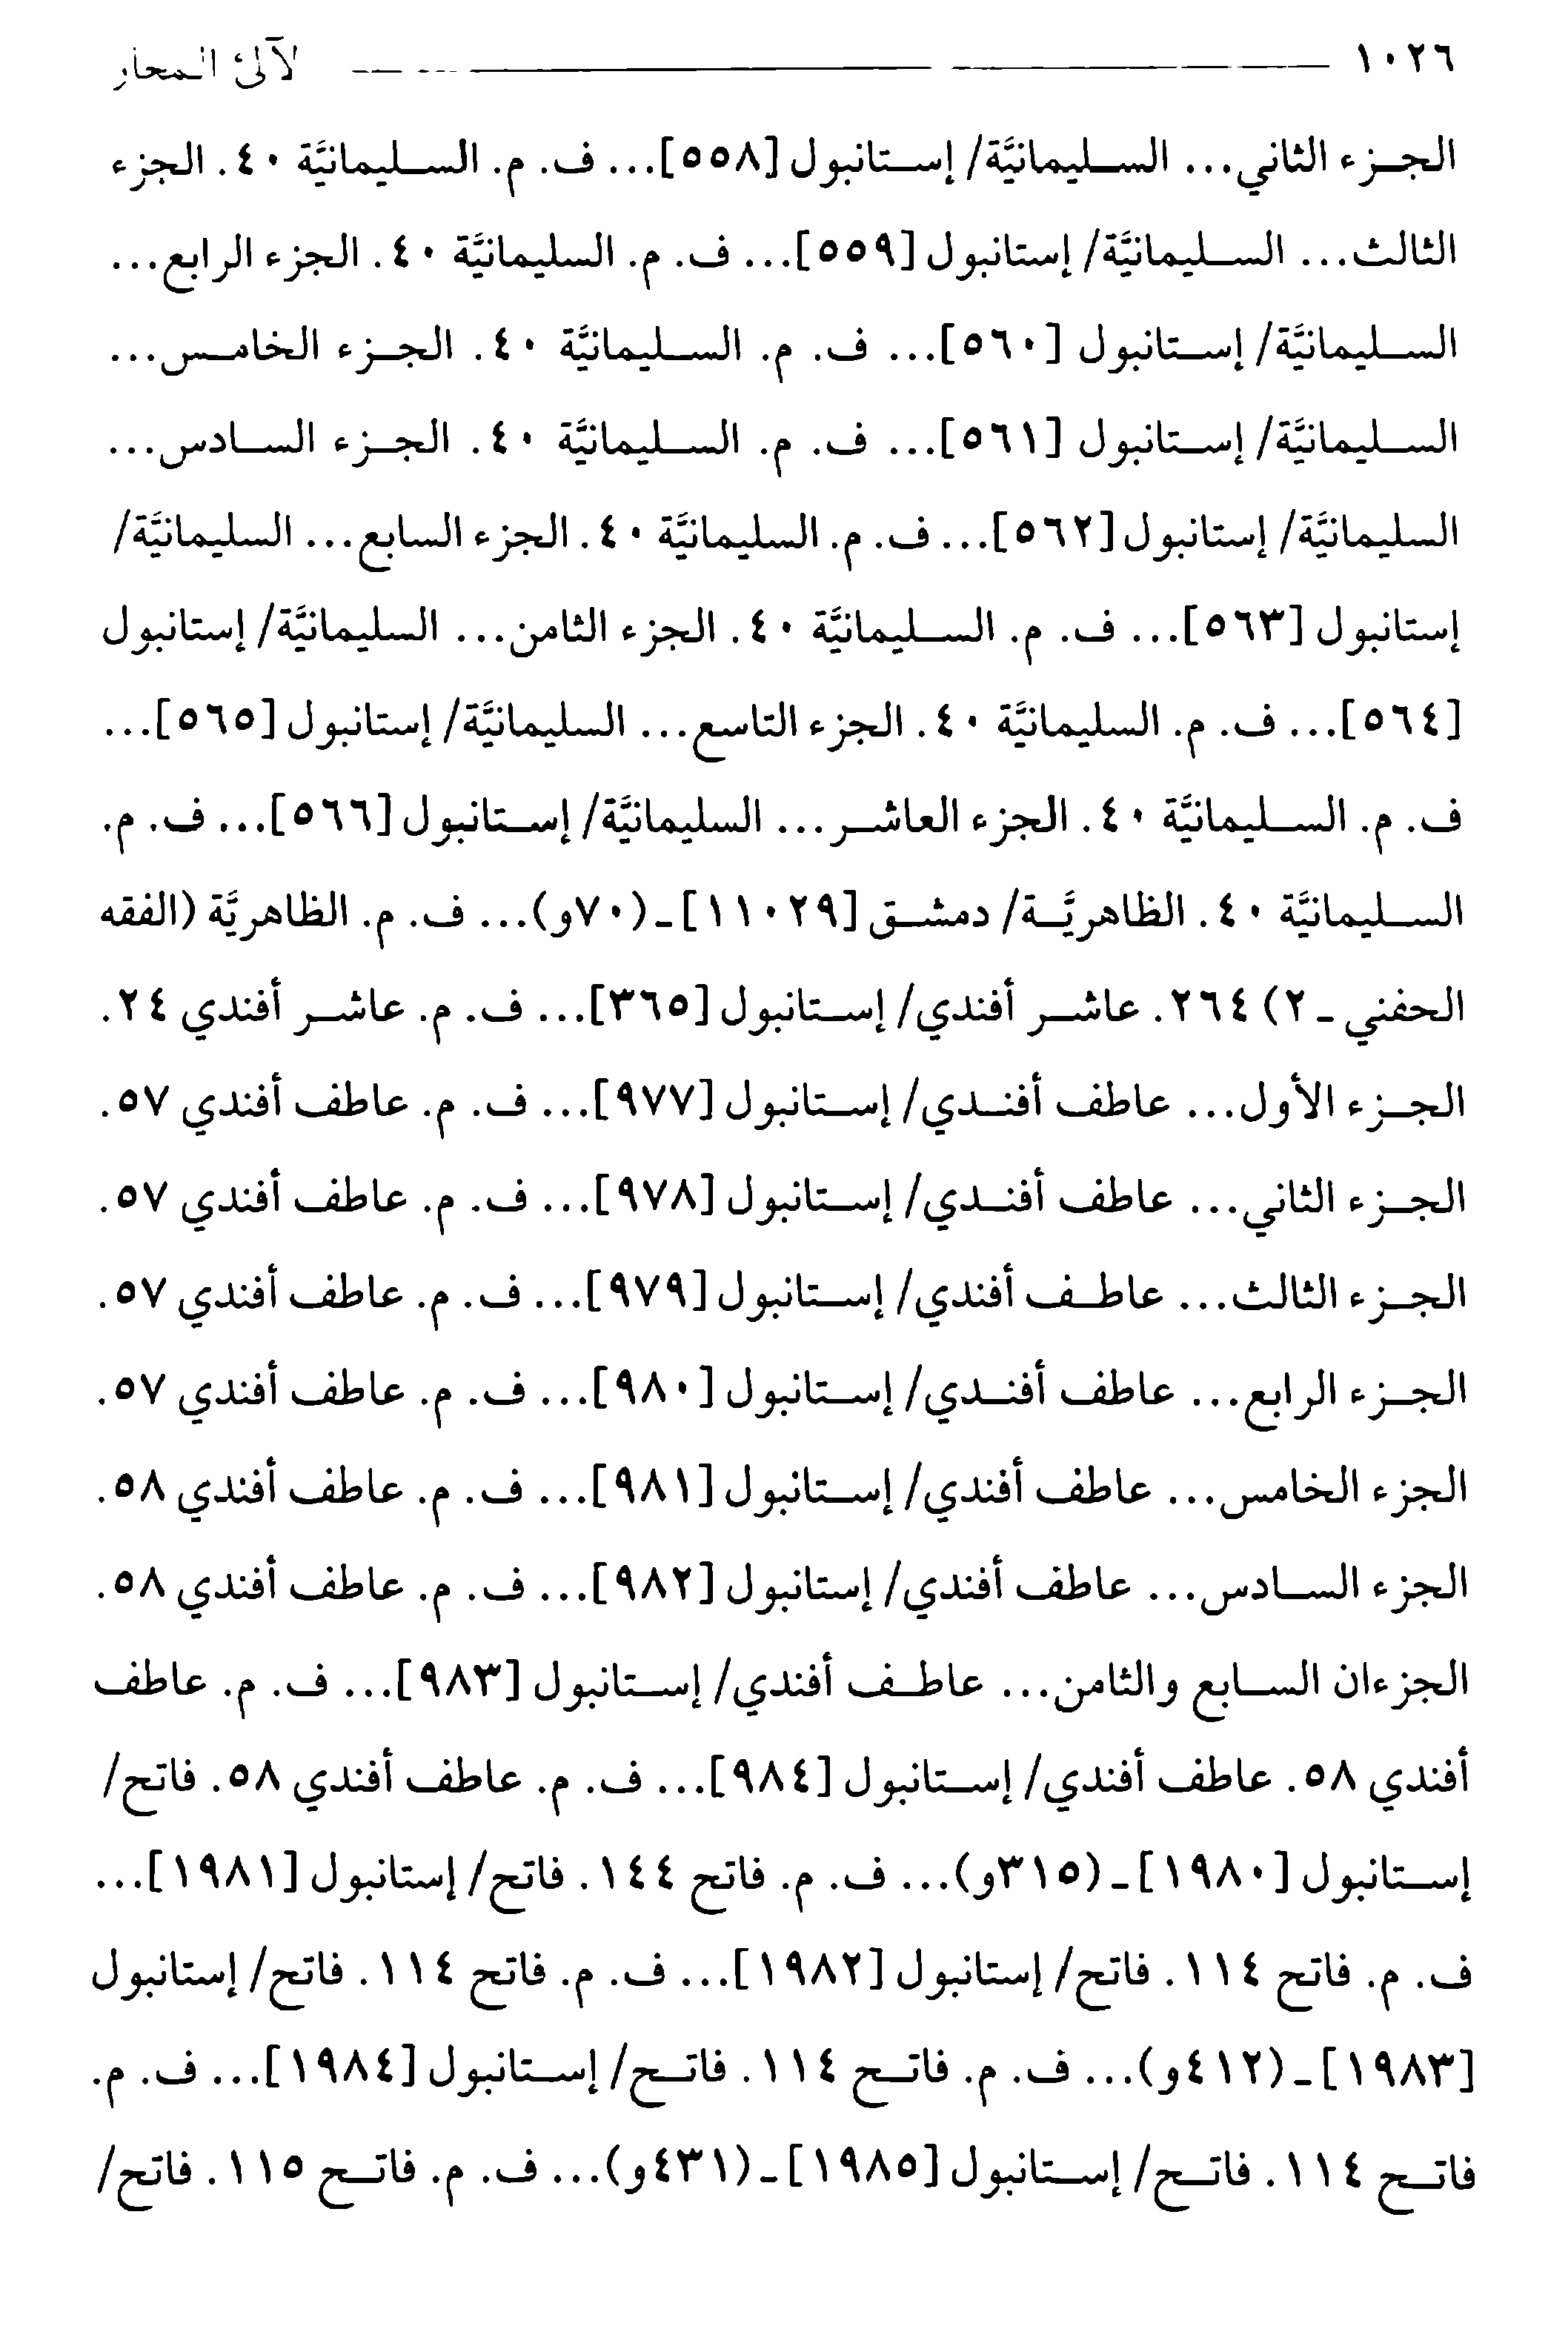 ١٠٢٦ لآلئ المحار
الجزء الثاني... السليمانيَّة/ إستانبول [٥٥٨]... ف. م. السليمانيَّة ٤٠. الجزء
الثالث... السليمانيَّة/ إستانبول [٥٥٩]... ف. م. السليمانيَّة ٤٠. الجزء الرابع...
السليمانيَّة/ إستانبول [٥٦٠]... ف. م. السليمانيَّة ٤٠. الجزء الخامس...
السليمانيَّة/ إستانبول [٥٦١]... ف. م. السليمانيَّة ٤٠. الجزء السادس...
السليمانيَّة/ إستانبول [٥٦٢]... ف. م. السليمانيَّة ٤٠. الجزء السابع... السليمانيَّة/
إستانبول [٥٦٣]... ف. م. السليمانيَّة ٤٠. الجزء الثامن... السليمانيَّة/ إستانبول
[٥٦٤]... ف. م. السليمانيَّة ٤٠. الجزء التاسع... السليمانيَّة/ إستانبول [٥٦٥]...
ف. م. السليمانيَّة ٤٠. الجزء العاشر... السليمانيَّة/ إستانبول [٥٦٦]... ف. م.
السليمانيَّة ٤٠. الظاهريَّة/ دمشق [١١٠٢٩] ـ (٧٠و)... ف. م. الظاهريَّة (الفقه
الحفني ـ ٢) ٢٦٤. عاشر أفندي/ إستانبول [٣٦٥]... ف. م. عاشر أفندي ٢٤.
الجزء الأول... عاطف أفندي/ إستانبول [٩٧٧]... ف. م. عاطف أفندي ٥٧.
الجزء الثاني... عاطف أفندي/ إستانبول [٩٧٨]... ف. م. عاطف أفندي ٥٧.
الجزء الثالث... عاطف أفندي/ إستانبول [٩٧٩]... ف. م. عاطف أفندي ٥٧.
الجزء الرابع... عاطف أفندي/ إستانبول [٩٨٠]... ف. م. عاطف أفندي ٥٧.
الجزء الخامس... عاطف أفندي/ إستانبول [٩٨١]... ف. م. عاطف أفندي ٥٨.
الجزء السادس... عاطف أفندي/ إستانبول [٩٨٢]... ف. م. عاطف أفندي ٥٨.
الجزءان السابع والثامن... عاطف أفندي/ إستانبول [٩٨٣]... ف. م. عاطف
أفندي ٥٨. عاطف أفندي/ إستانبول [٩٨٤]... ف. م. عاطف أفندي ٥٨. فاتح/
إستانبول [١٩٨٠] ـ (٣١٥و)... ف. م. فاتح ١٤٤. فاتح/ إستانبول [١٩٨١]...
ف. م. فاتح ١١٤. فاتح/ إستانبول [١٩٨٢]... ف. م. فاتح ١١٤. فاتح/ إستانبول
[١٩٨٣] ـ (٤١٢و)... ف. م. فاتح ١١٤. فاتح/ إستانبول [١٩٨٤]... ف. م.
فاتح ١١٤. فاتح/ إستانبول [١٩٨٥] ـ (٤٣١و)... ف. م. فاتح ١١٥. فاتح/